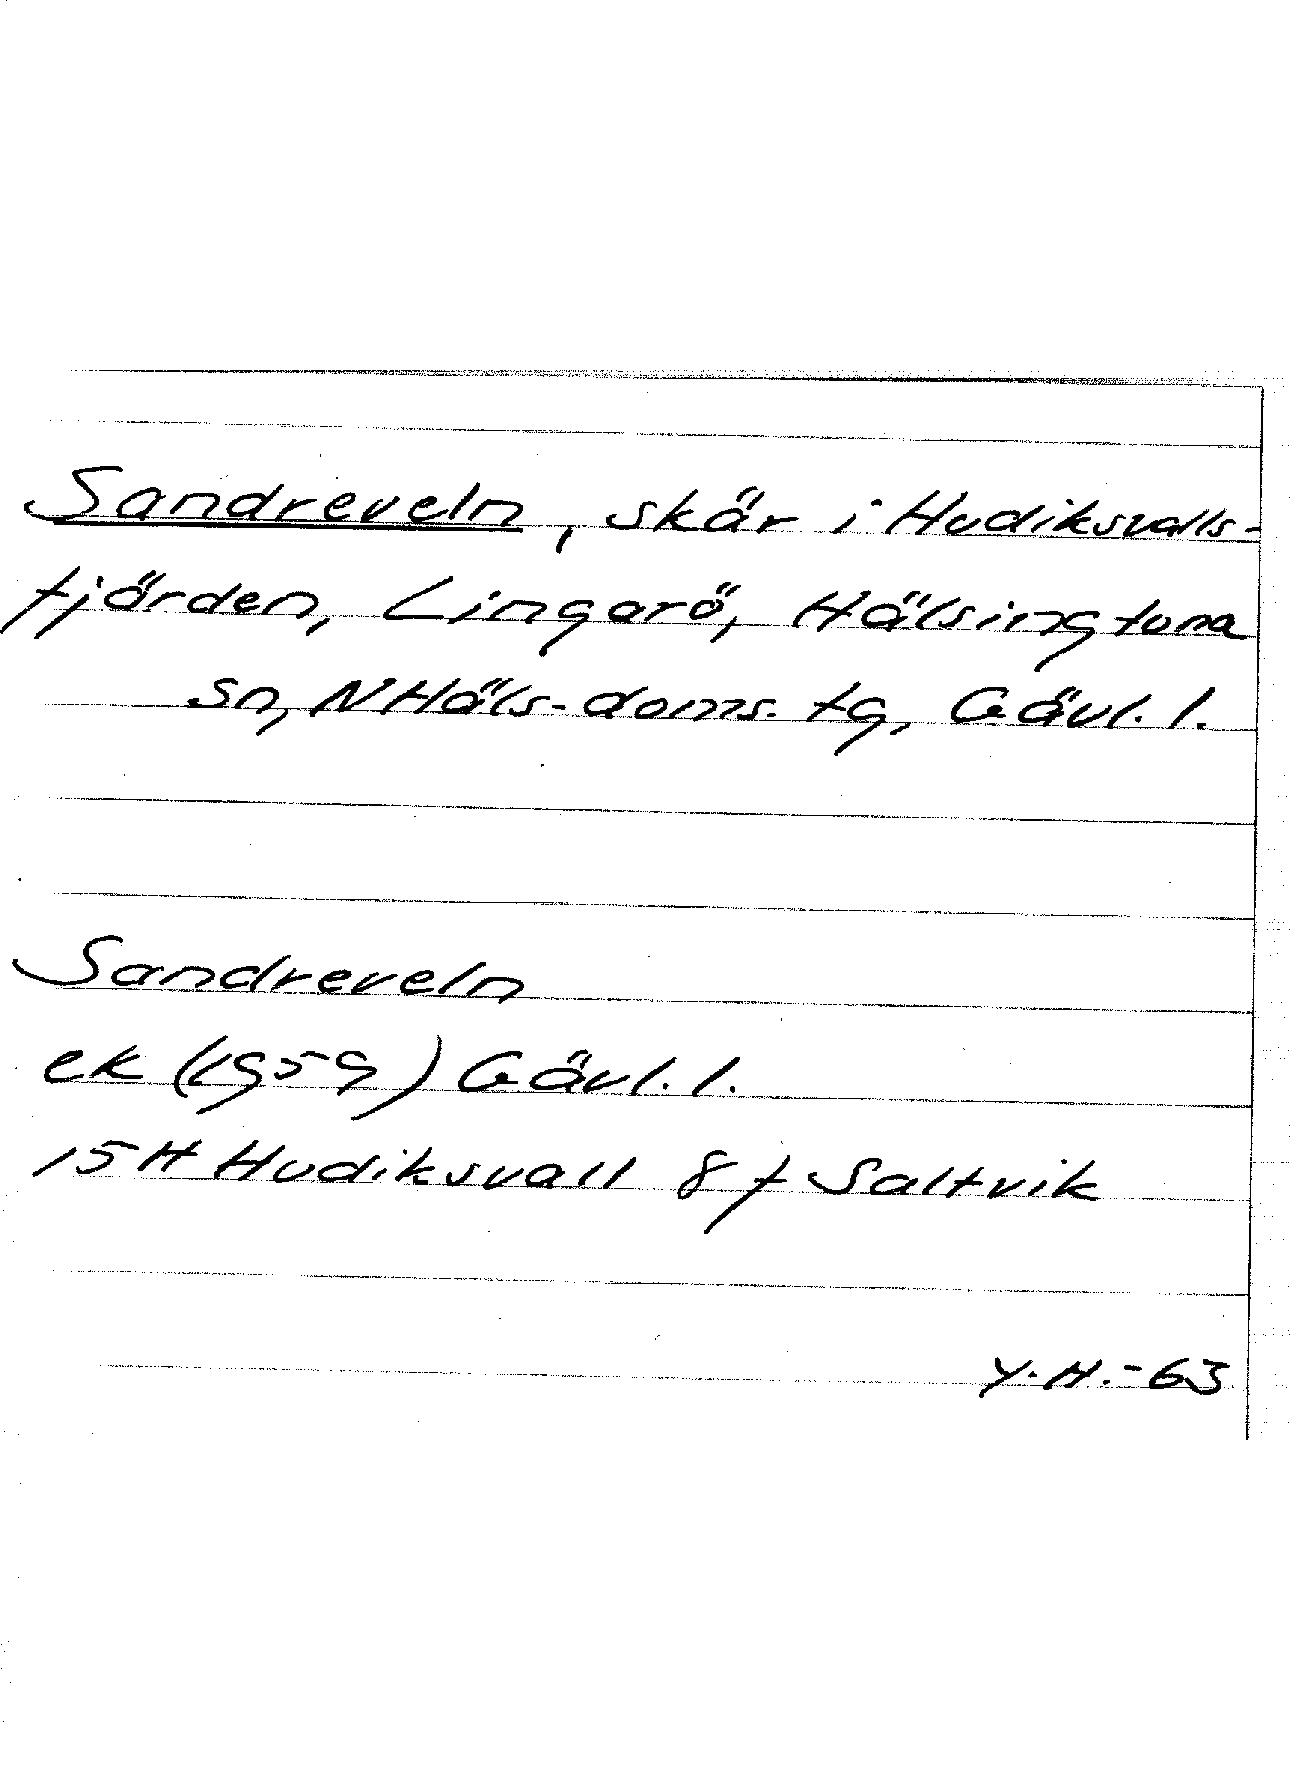 Sandreveln, skär i Hudiksvalls-
fjärden, Lingarö, Hälsingtuna
sn, NHäls-doms. tg, Gävl. l.
Sandreveln
ek (1959) Gävl. l.
15H Hudiksvall 8f Saltvik
Y.H.-63